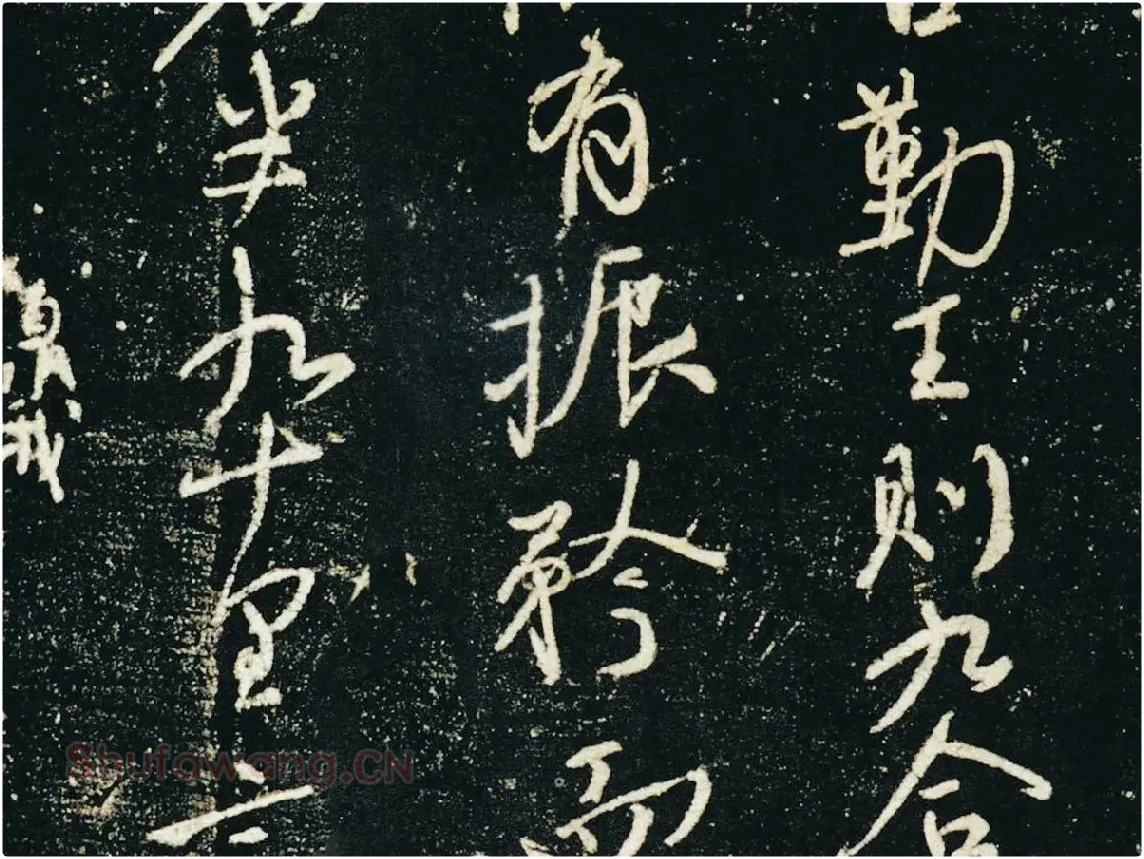 勤王則九合
有振矜而
半九十里
Shufawang.CN